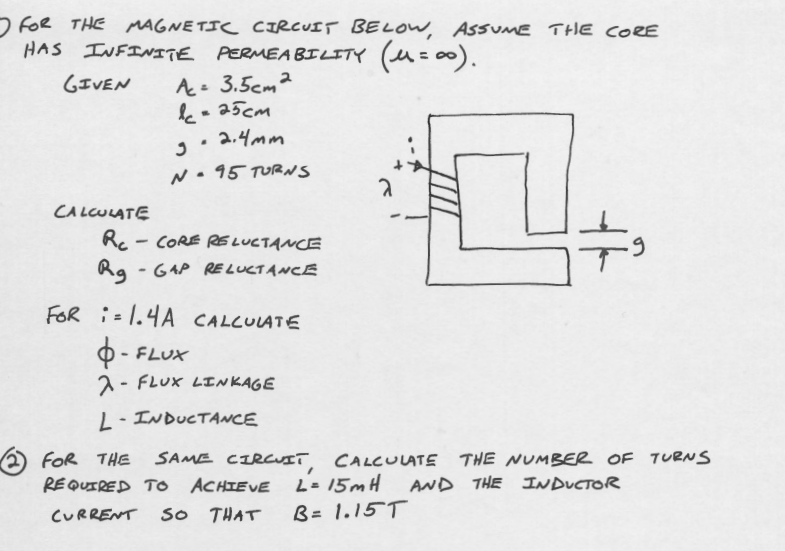 ) FOR THE MAGNETIC CIRCUIT BELOW, ASSUME THE CORE
HAS INFINITE PERMEABILITY (μ = ∞).
GIVEN Ac = 3.5cm²
lc = 25cm
g = 2.4mm
N = 95 TURNS
i
+
λ
-
g
CALCULATE
Rc - CORE RELUCTANCE
Rg - GAP RELUCTANCE
FOR i = 1.4A CALCULATE
ϕ - FLUX
λ - FLUX LINKAGE
L - INDUCTANCE
② FOR THE SAME CIRCUIT, CALCULATE THE NUMBER OF TURNS
REQUIRED TO ACHIEVE L = 15mH AND THE INDUCTOR
CURRENT SO THAT B = 1.15T